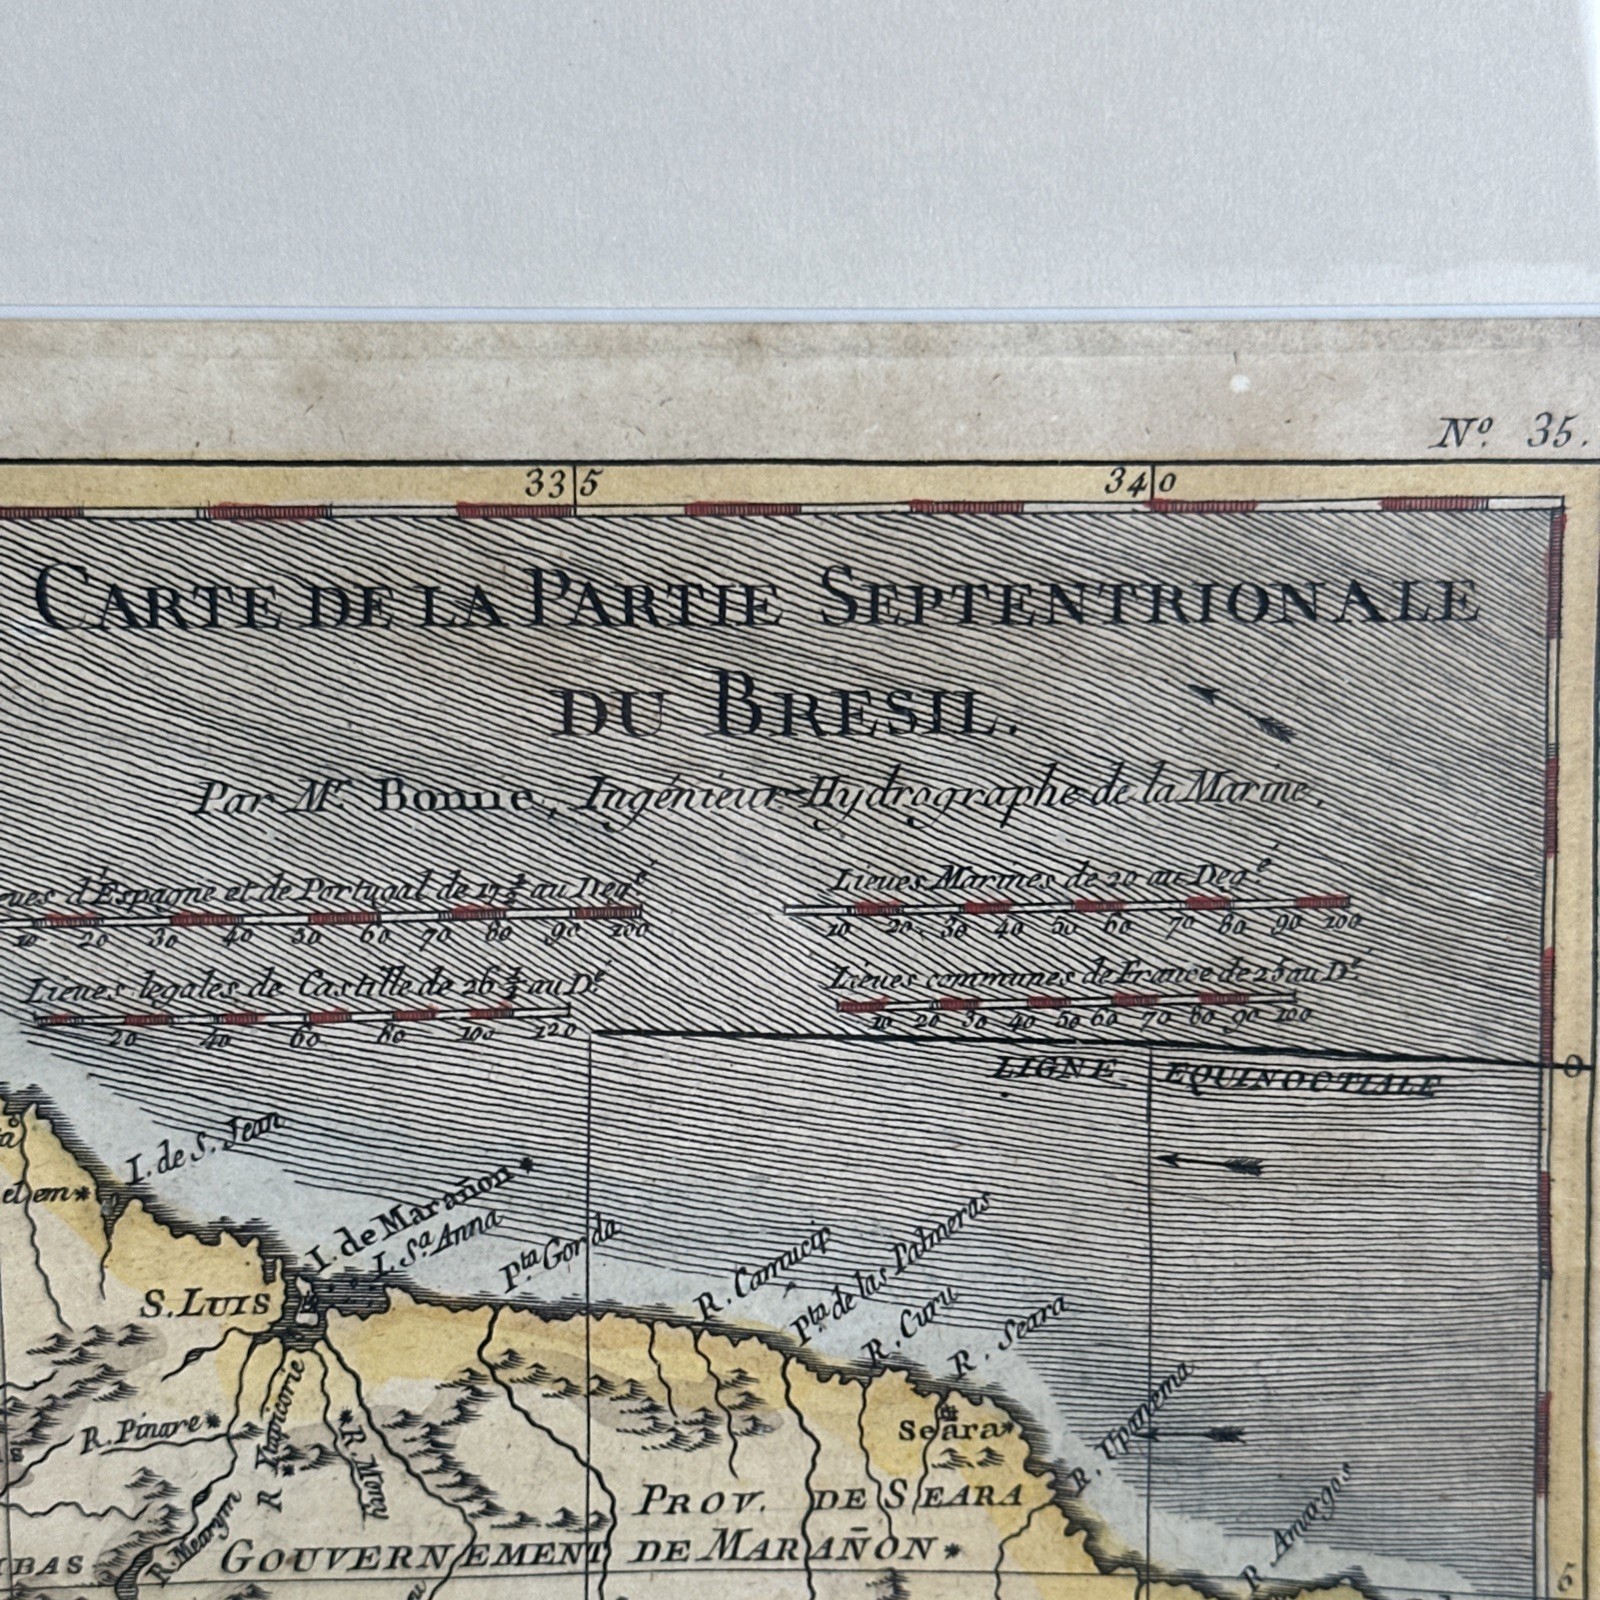 N.º 35.
335 340
CARTE DE LA PARTIE SEPTENTRIONALE
DU BRESIL.
Par M.r Bonne, Ingénieur-Hydrographe de la Marine.
d'Espagne et de Portugal de 17 ½ au Deg.é
10 20 30 40 50 60 70 80 90 100
Lieues Marines de 20 au Deg.é
10 20 30 40 50 60 70 80 90 100
Lieues legales de Castille de 26 ½ au D.é
20 40 60 80 100 120
Lieues communes de France de 25 au D.é
10 20 30 40 50 60 70 80 90 100
LIGNE EQUINOCTIALE
0
I. de S. Jean
I. de Marañon*
I. S.a Anna
P.ta Gorda
R. Camucip
P.ta de las Palmeras
R. Curu
R. Seara
S. LUIS
R. Pinare*
R. Itapicorie
R. Mony
R. Mearym
Seara*
R. Upanema
R. Amargos
PROV. DE SEARA
GOUVERNEMENT DE MARAÑON*
5